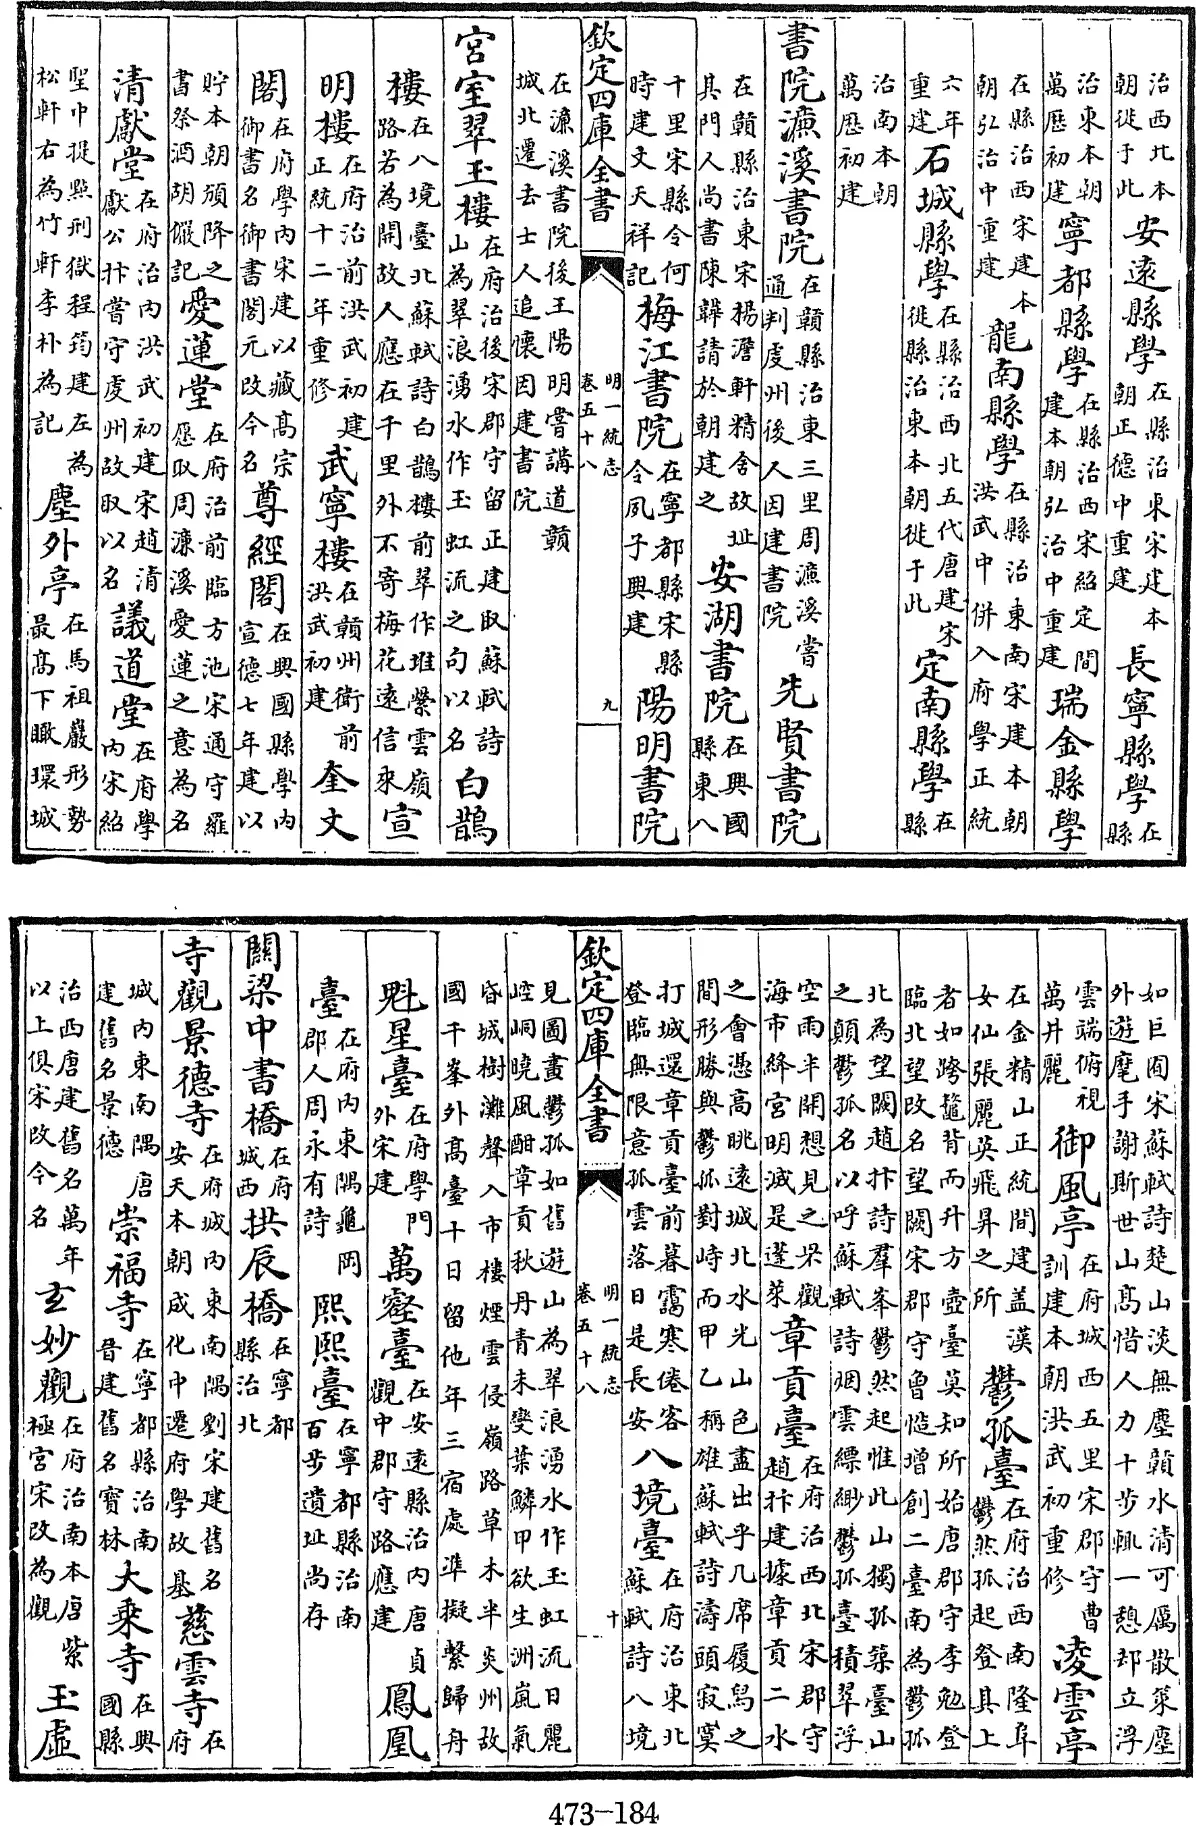 治西北本朝徙于此安遠縣學在縣治東宋建本朝正德中重建長寧縣學在縣
治東本朝萬歷初建寧都縣學在縣治西宋紹定間建本朝弘治中重建瑞金縣學
在縣治西宋建本朝弘治中重建龍南縣學在縣治東南宋建本朝洪武中併入府學正統
六年重建石城縣學在縣治西北五代唐建宋徙縣治東本朝徙于此定南縣學在縣
治南本朝萬歷初建
書院濂溪書院在贛縣治東三里周濂溪嘗通判虔州後人因建書院先賢書院
在贛縣治東宋楊澹軒精舍故址其門人尚書陳韡請於朝建之安湖書院在興國縣東八
十里宋縣令何時建文天祥記梅江書院在寧都縣宋縣令夙子興建陽明書院
欽定四庫全書 明一統志卷五十八 九
在濂溪書院後王陽明嘗講道贛城北遷去士人追懷因建書院
宮室翠玉樓在府治後宋郡守留正建取蘇軾詩山為翠浪湧水作玉虹流之句以名白鵲
樓在八境臺北蘇軾詩白鵲樓前翠作堆縈雲嶺路若為開故人應在千里外不寄梅花遠信來宣
明樓在府治前洪武初建正統十二年重修武寧樓在贛州衛前洪武初建奎文
閣在府學內宋建以藏高宗御書名御書閣元改今名尊經閣在興國縣學內宣德七年建以
貯本朝頒降之書祭酒胡儼記愛蓮堂在府治前臨方池宋通守羅愿取周濂溪愛蓮之意為名
清獻堂在府治內洪武初建宋趙清獻公抃嘗守虔州故取以名議道堂在府學內宋紹
聖中提點刑獄程筠建左為松軒右為竹軒李朴為記塵外亭在馬祖巖形勢最高下瞰環城
如巨囿宋蘇軾詩楚山淡無塵贛水清可厲散策塵外遊麾手謝斯世山高惜人力十步輒一憩却立浮
雲端俯視萬井麗御風亭在府城西五里宋郡守曹訓建本朝洪武初重修凌雲亭
在金精山正統間建葢漢女仙張麗英飛昇之所鬱孤臺在府治西南隆阜鬱然孤起登其上
者如跨鼇背而升方壺臺莫知所始唐郡守李勉登臨北望改名望闕宋郡守曾慥增創二臺南為鬱孤
北為望闕趙抃詩羣峯鬱然起惟此山獨孤築臺山之顛鬱孤名以呼蘇軾詩烟雲縹緲鬱孤臺積翠浮
空雨半開想見之罘觀海市絳宮明滅是蓬萊章貢臺在府治西北宋郡守趙抃建據章貢二水
之會憑高眺遠城北水光山色盡出乎几席履舃之間形勝與鬱孤對峙而甲乙稱雄蘇軾詩濤頭寂寞
打城還章貢臺前暮靄寒倦客登臨無限意孤雲落日是長安八境臺在府治東北蘇軾詩八境
欽定四庫全書 明一統志卷五十八 十
見圖畫鬱孤如舊遊山為翠浪湧水作玉虹流日麗崆峒曉風酣章貢秋丹青未變葉鱗甲欲生洲嵐氣
昏城樹灘聲入市樓煙雲侵嶺路草木半炎州故國千峯外高臺十日留他年三宿處準擬繫歸舟
魁星臺在府學門外宋建萬壑臺在安遠縣治內唐貞觀中郡守路應建鳳凰
臺在府內東隅龜岡郡人周永有詩熙熙臺在寧都縣治南百步遺址尚存
關梁中書橋在府城西拱辰橋在寧都縣治北
寺觀景德寺在府城內東南隅劉宋建舊名安天本朝成化中遷府學故基慈雲寺在府
城內東南隅唐建舊名景德崇福寺在寧都縣治南晉建舊名寶林大乘寺在興國縣
治西唐建舊名萬年以上俱宋改今名玄妙觀在府治南本唐紫極宮宋改為觀玉虛
473-184